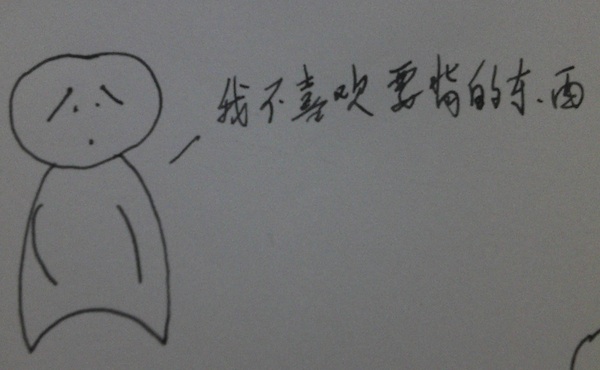 我不喜欢要背的东西